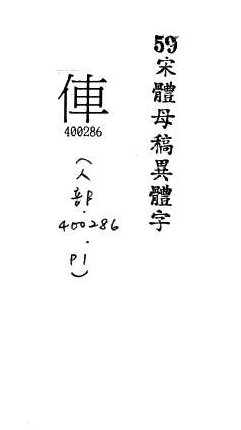 59宋體母稿異體字
俥
400286
(人部.400286.P1)